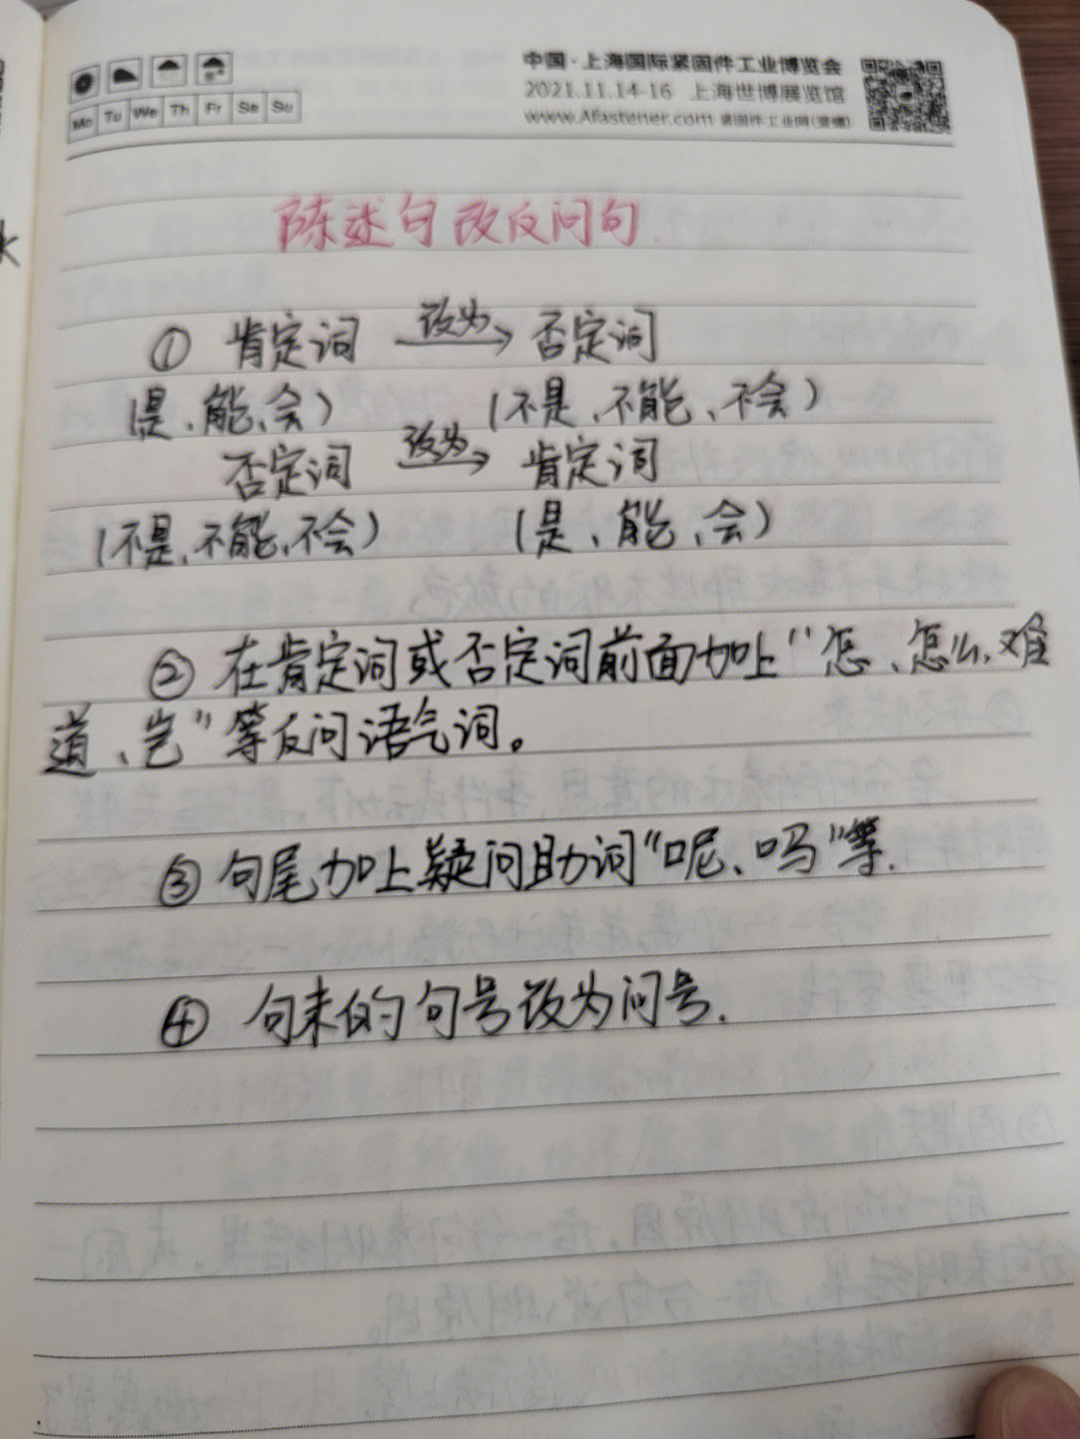 中国·上海国际紧固件工业博览会
2021.11.14-16 上海世博展览馆
Mo Tu We Th Fr Sa Su
www.Afastener.com 紧固件工业网(爱螺)
陈述句改反问句
① 肯定词 改为→ 否定词
(是、能、会) (不是、不能、不会)
否定词 改为→ 肯定词
(不是、不能、不会) (是、能、会)
② 在肯定词或否定词前面加上“怎、怎么、难
道、岂”等反问语气词。
③ 句尾加上疑问助词“呢、吗”等.
④ 句末的句号改为问号.